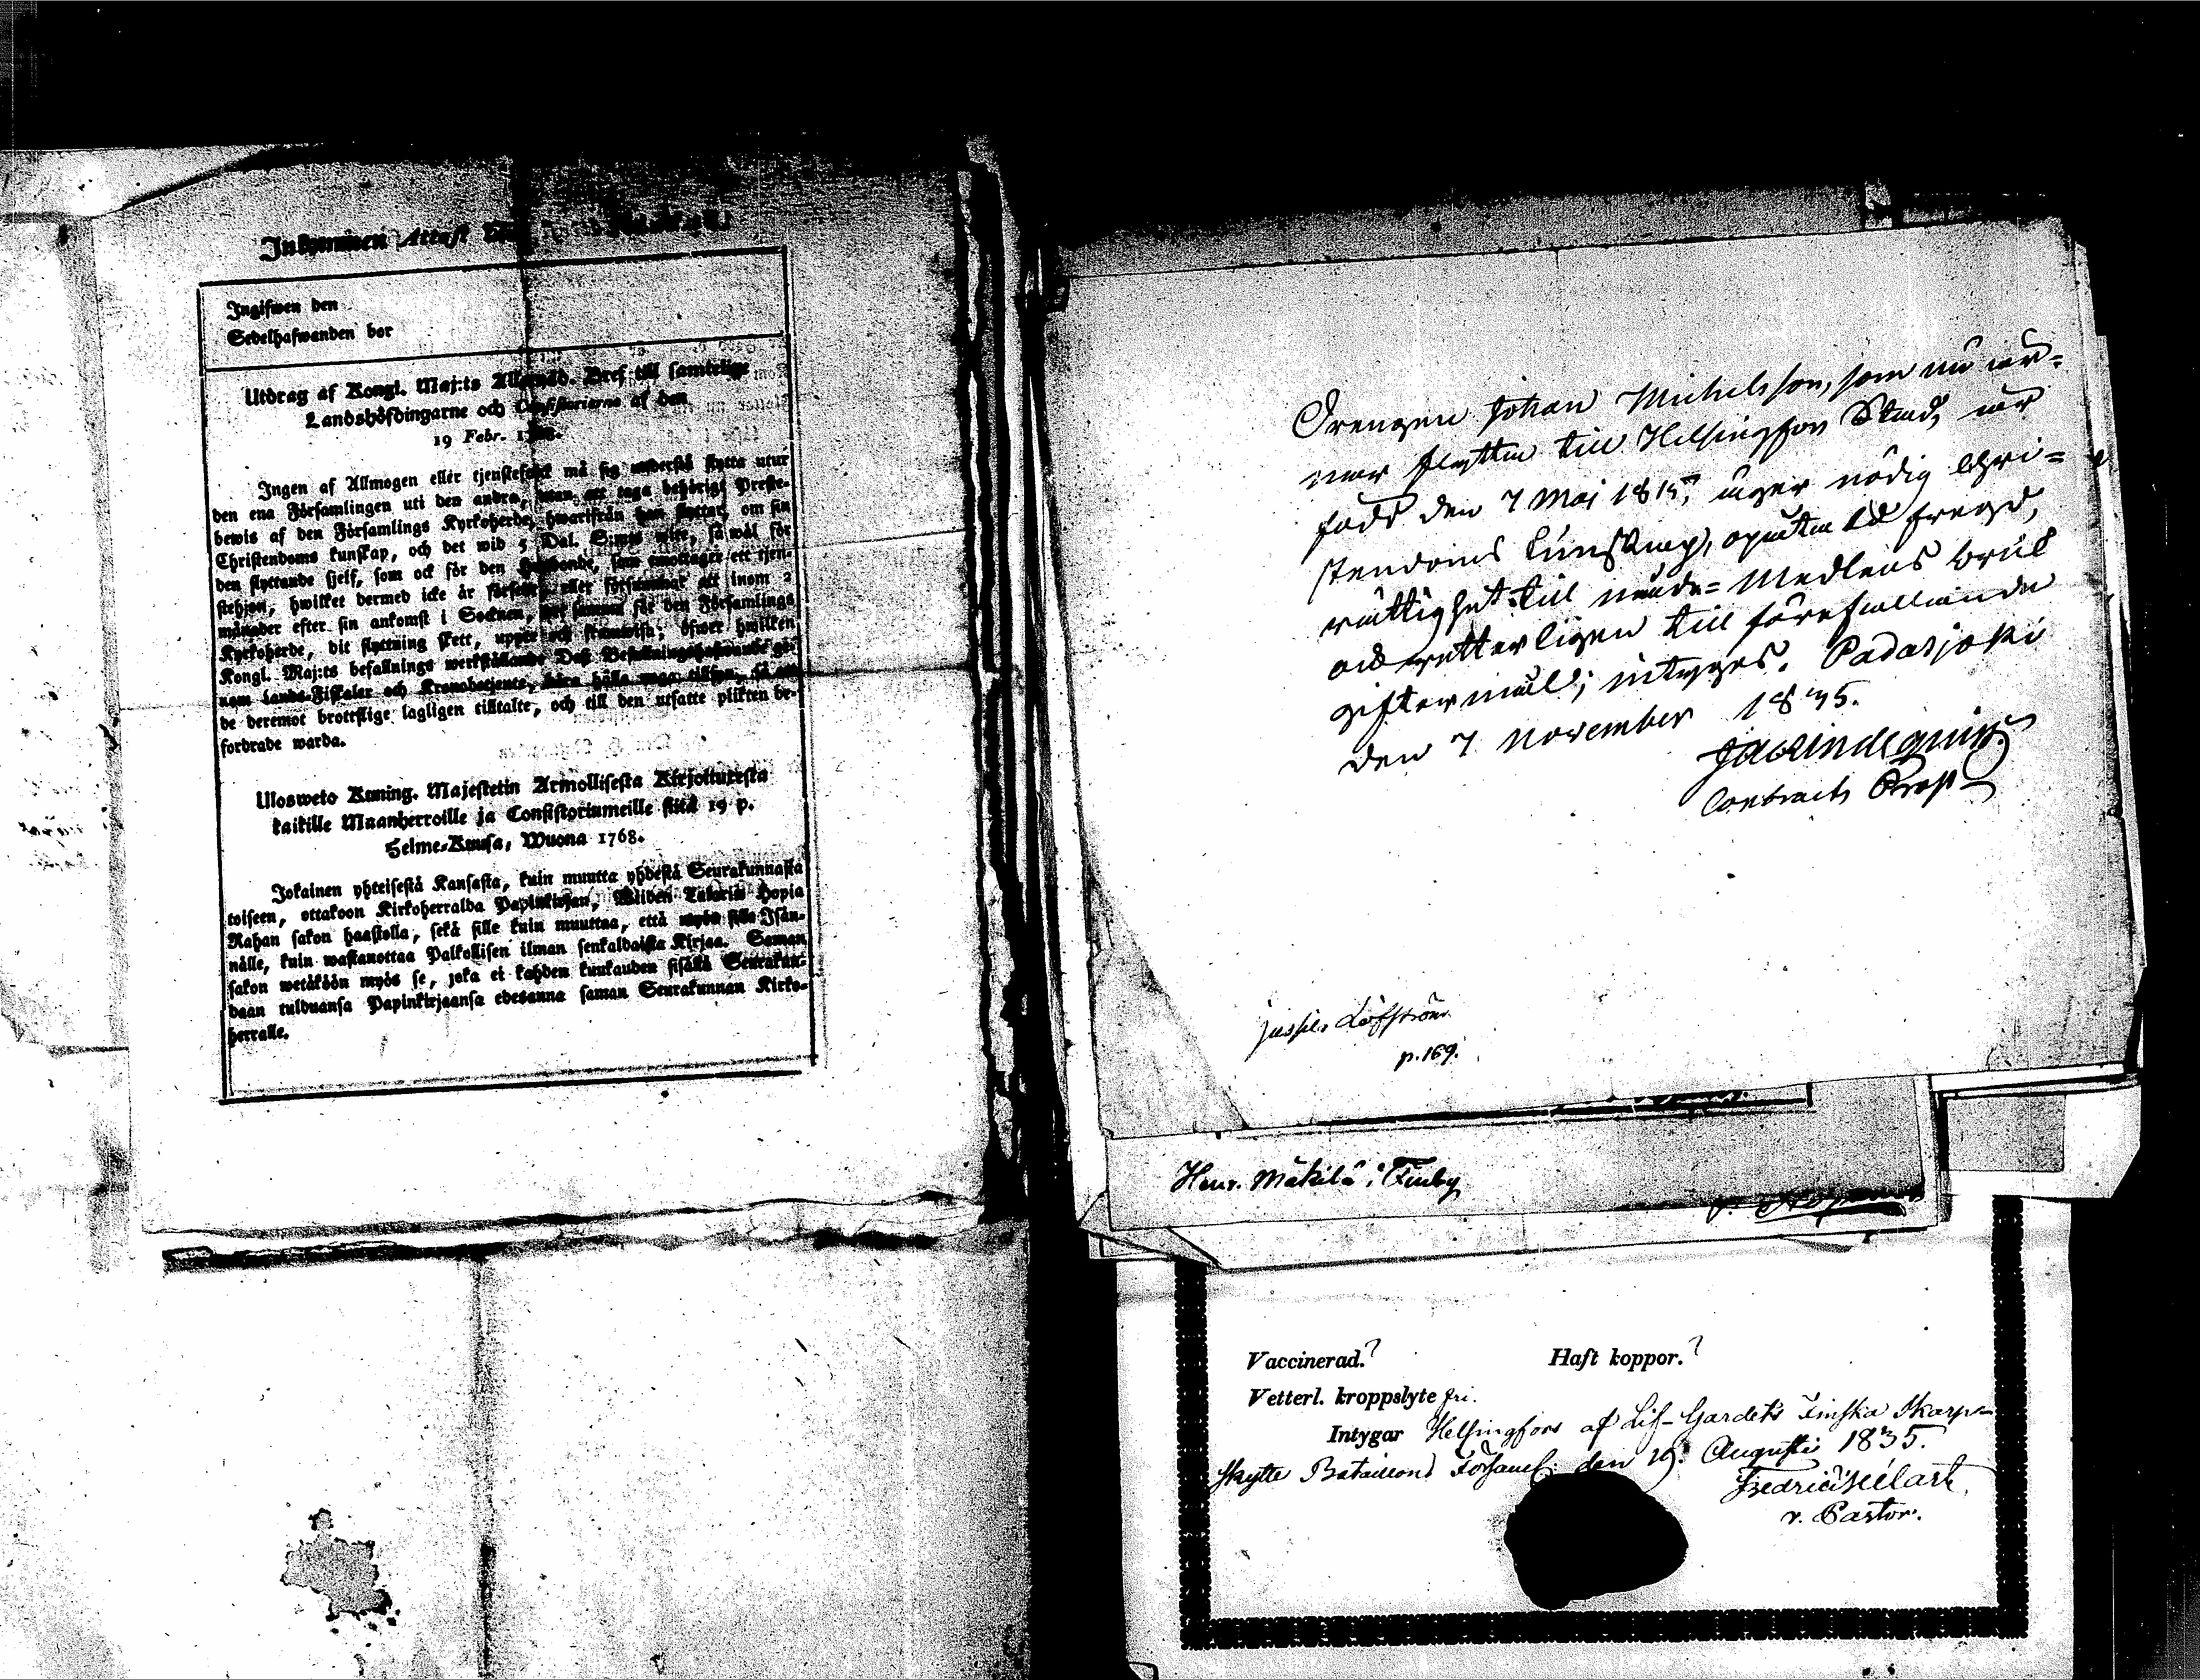 Inkommen Attest
Ingifwen den
Sedelhafwanden bor
Utdrag af Kongl. Maj:ts Allernåd. Bref till samtelige
Landshöfdingarne och Consistorierne af den
19 Febr.
Ingen af Allmogen eller tjenstefolk må sig understå flytta utur
den ena Församlingen uti den andra, utan att taga behörigt Preste-
bewis af den Församlings Kyrkoherde, hwarifrån han flyttar, om sin
Christendoms kunskap, och det wid 5 Dal. S:mts wite, så wäl för
den flyttande sjelf, som ock för den Husbonde, som emottager ett tjen-
stehjon, hwilket dermed icke är försedt, eller försummar att inom 2
månader efter sin ankomst i Socknen, för den Församlings
Kyrkoherde, dit flyttning skett, uppte och framwisa; öfwer hwilken
Kongl. Maj:ts befallnings werkställande Dess Befallningshafwande ge-
nom Lands-Fiskaler och Kronobetjente, böra hålla noga tillsyn, så att
de deremot brottslige lagligen tilltalte, och till den utsatte plikten be-
fordrade warda.
Ulosweto Kuning. Majestetin Armollisesta Kirjoituxesta
kaikille Maanherroille ja Consistoriumeille siitä 19 p.
Helme-Kuusa, Wuona 1768.
Jokainen yhteisestä Kansasta, kuin muutta yhdestä Seurakunnasta
toiseen, ottakoon Kirkoherralda Papinkirjan, Wiiden Talarin Hopia
Rahan sakon haastolla, sekä sille kuin muuttaa, että myös sille Isän-
nälle, kuin wastanottaa Palkollisen ilman senkaldaista Kirjaa. Saman
sakon wetäköön myös se, joka ei kahden kuukauden sisällä Seurakun-
daan tulduansa Papinkirjaansa edesanna saman Seurakunnan Kirko-
herralle.
Drengen Johan Michelsson, som nu är-
nar flytta till Helsingfors Stad, är
född den 7 Maj 1815, äger nödig Chri-
stendoms kunskap, oputen fregd,
rättighet till nåde-Medlens bruk
och wetterligen till förefallande
giftermål; intygas. Padasjoki
den 7 November 1835.
Contracts Prost
Jussila Löfström
p. 169.
Henr. Mäkilä i Finby
Vaccinerad.?
Haft koppor.?
Vetterl. kroppslyte fri.
Intygar Helsingfors af Lif-Gardets Finska Skarp-
skytte Bataillons Församl: den 19: Augusti 1835.
v. Pastor.